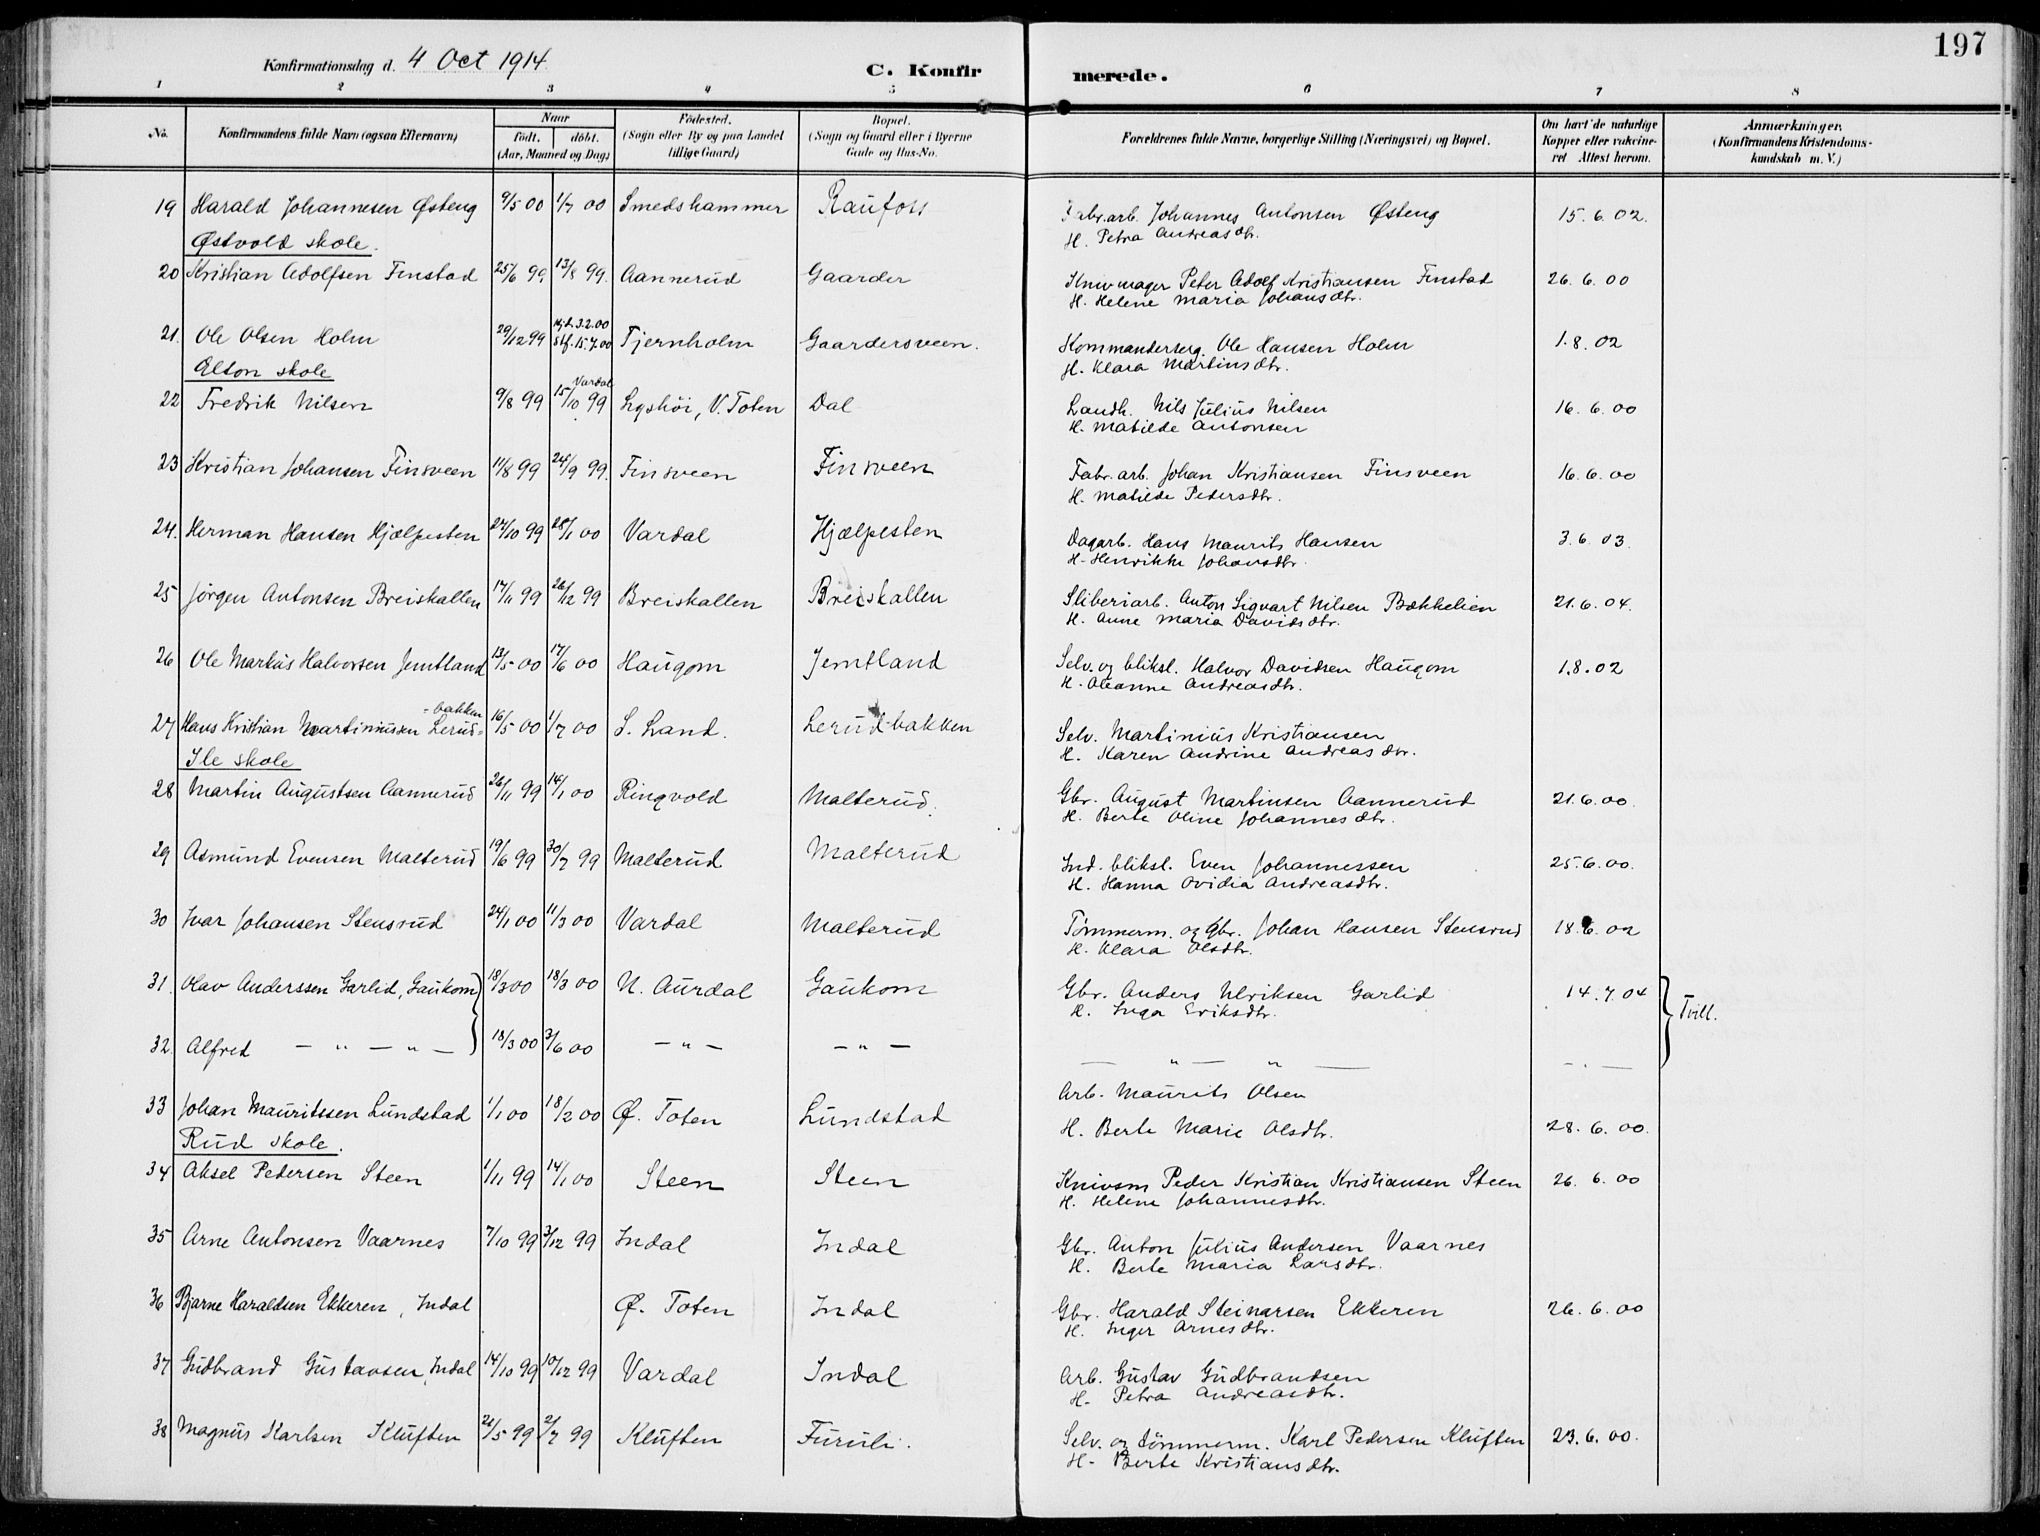 197
Konfirmationsdag d. 4 Oct 1914.
C. Konfirmerede.
1 2 3 4 5 6 7 8
No.
Konfirmandens fulde Navn (ogsaa Efternavn)
Naar
født. døbt.
(Aar, Maaned og Dag)
Fødested.
(Sogn eller By og paa Landet
tillige Gaard)
Bopæl.
(Sogn og Gaard eller i Byerne
Gade og Hus-No.
Forældrenes fulde Navne, borgerlige Stilling (Næringsvei) og Bopæl.
Om havt de naturlige
Kopper eller vakcine-
ret Attest herom.
Anmærkninger.
(Konfirmandens Kristendoms-
kundskab m. V.)
19 Harald Johannesen Østeng 9/5 00 1/7 00 Smedshammer Raufoss Fabr.arb. Johannes Antonsen Østeng 15.6.02.
H. Petra Andreasdtr.
Østvold skole.
20 Kristian Adolfsen Finstad 25/6 99. 13/8 99. Aannerud Gaarder Knivmager Peter Adolf Kristiansen Finstad 26.6.00
H. Helene Maria Johansdtr.
21. Ole Olsen Holm 29/12 99 Hjd. 3.2.00 Stf. 15.7.00 Tjernholm Gaardersveen. Kommanderserg. Ole Hansen Holm 1.8.02
H. Klara Martinsdtr.
Elton skole
22 Fredrik Nilsen 9/8 99 15/10 99 Vardal Lyshöi, V. Toten Dal Landh. Nils Julius Nilsen 16.6.00
H. Matilde Antonsen
23 Kristian Johansen Finsveen 11/8 99 24/9 99. Finsveen Finsveen Fabr.arb. Johan Kristiansen Finsveen 16.6.00
H. Matilde Pedersdtr.
24. Herman Hansen Hjælpesten 27/10 99 28/1 00 Vardal Hjælpesten Dagarb. Hans Maurits Hansen 3.6.03.
H. Henrikke Johansdtr.
25 Jörgen Antonsen Breiskallen 17/11 99 26/12 99 Breiskallen Breiskallen Sliberiarb. Anton Sigvart Nilsen Bækkelien 21.6.04.
H. Anne Maria Davidsdtr.
26 Ole Markus Halvorsen Jemtland 13/5 00 17/6 00 Haugom Jemtland Selv. og bliksl. Halvor Davidsen Haugom 1.8.02
H. Oleanne Andreasdtr.
27 Hans Kristian Martiniussen Lerud-bakken 16/5 00 1/7 00 S. Land. Lerudbakken Selv. Martinius Kristiansen
H. Karen Andrine Andreasdtr.
Ile skole
28 Martin Augustsen Aannerud 26/11 99 14/1 00 Ringvold Malterud. Gbr. August Martinsen Aannerud 21.6.00.
H. Berte Oline Johannesdtr.
29 Asmund Evensen Malterud 19/6 99 30/7 99 Malterud Malterud Ind. bliksl. Even Johannessen 25.6.00.
H. Hanna Ovidia Andreasdtr.
30 Ivar Johansen Stensrud 24/1 00 11/3 00 Vardal Malterud Tömmerm. og gbr. Johan Hansen Stensrud 18.6.02
H. Klara Olsdtr.
31. Olav Anderssen Garlid, Gaukom 18/3 00 18/3 00 N. Aurdal Gaukom Gbr. Anders Ulriksen Garlid 14.7.04 Tvill.
H. Inga Eriksdtr.
32. Alfred — " — " — 18/3 00 3/6 00 — " — — " — — " — " — - . —
33 Johan Mauritssen Lundstad 1/1 00 18/2 00 Ø. Toten Lundstad Arb. Maurits Olsen
H. Berte Marie Olsdtr. 28.6.00.
Rud skole.
34 Aksel Pedersen Steen 1/11 99 14/1 00 Steen Steen Knivsm Peder Kristian Kristiansen Steen 26.6.00
H. Helene Johannesdtr.
35 Arne Antonsen Vaarnes 7/10 99 3/12 99 Indal Indal Gbr. Anton Julius Andersen Vaarnes
H. Berte Maria Larsdtr.
36 Bjarne Haraldsen Ekkeren, Indal Ø. Toten Indal Gbr. Harald Steinarsen Ekkeren 26.6.00
H. Inger Arnesdtr.
37 Gudbrand Gustavsen, Indal 14/10 99 10/12 99 Vardal Indal Arb. Gustav Gudbrandsen
H. Petra Andreasdtr.
38 Magnus Karlsen Kluften 21/5 99 2/7 99 Kluften Furuli. Selv. og tömmerm. Karl Pedersen Kluften 23.6.00.
H. Berte Kristiansdtr.